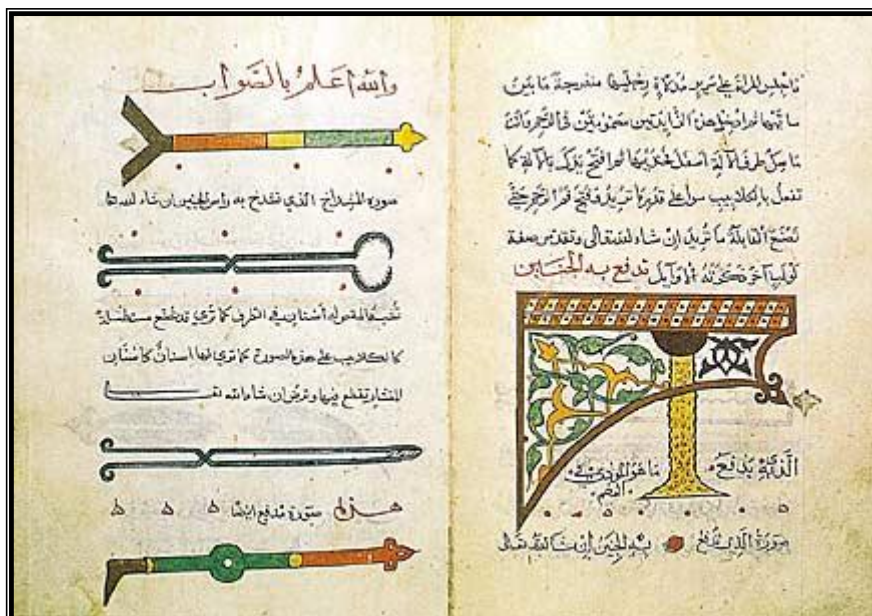 فاجلس المراة على سرير مدلاة رجليها منفرجة ما بين
ساقيها ثم ادخل هذه الزايدتين مضمومتين في الرحم وانت
ماسك طرف الالة اسفل فخذيها ثم افتح يدك بالالة كما
تفعل بالكلاليب سوا على قدر ما تريد فتح فم الرحم حتى
تصنع القابلة ما تريد ان شاء الله تعالى صفة
لولب آخر ذكرته الاوايل تدفع به
يدفع
صورة به الجنين ان شاء الله تعالى
والله اعلم بالصواب
صورة المشداخ الذي تشدخ به راس الجنين ان شاء الله
اسنان في الطرف كما تري قد تصنع مستطيلة
كالكلاليب على هذه الصورة كما تري لها اسنان كاسنان
المنشار يقطع بها وترض ان شاء الله
هذه صورة مدفع ايضا